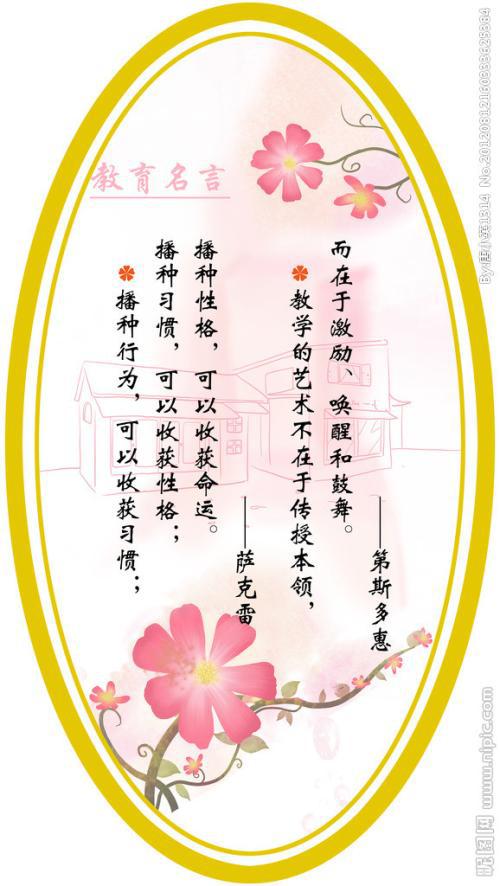 教育名言
播种行为，可以收获习惯；
播种习惯，可以收获性格；
播种性格，可以收获命运。
——萨克雷
教学的艺术不在于传授本领，
而在于激励、唤醒和鼓舞。
——第斯多惠
By:唐小英1314 No.20120812160333625384
昵图网 www.nipic.com